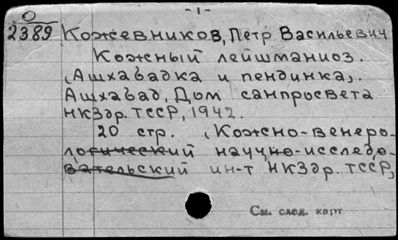 -1-
О
2389
Кожевников, Петр Васильевич
Кожный лейшманиоз.
(Ашхабадка и пендинка).
Ашхабад, Дом санпросвета
НКЗдр. ТССР, 1942.
20 стр. (Кожно-венеро-
логический научно-исследо-
вательский ин-т НКЗдр. ТССР,
См. след. карт